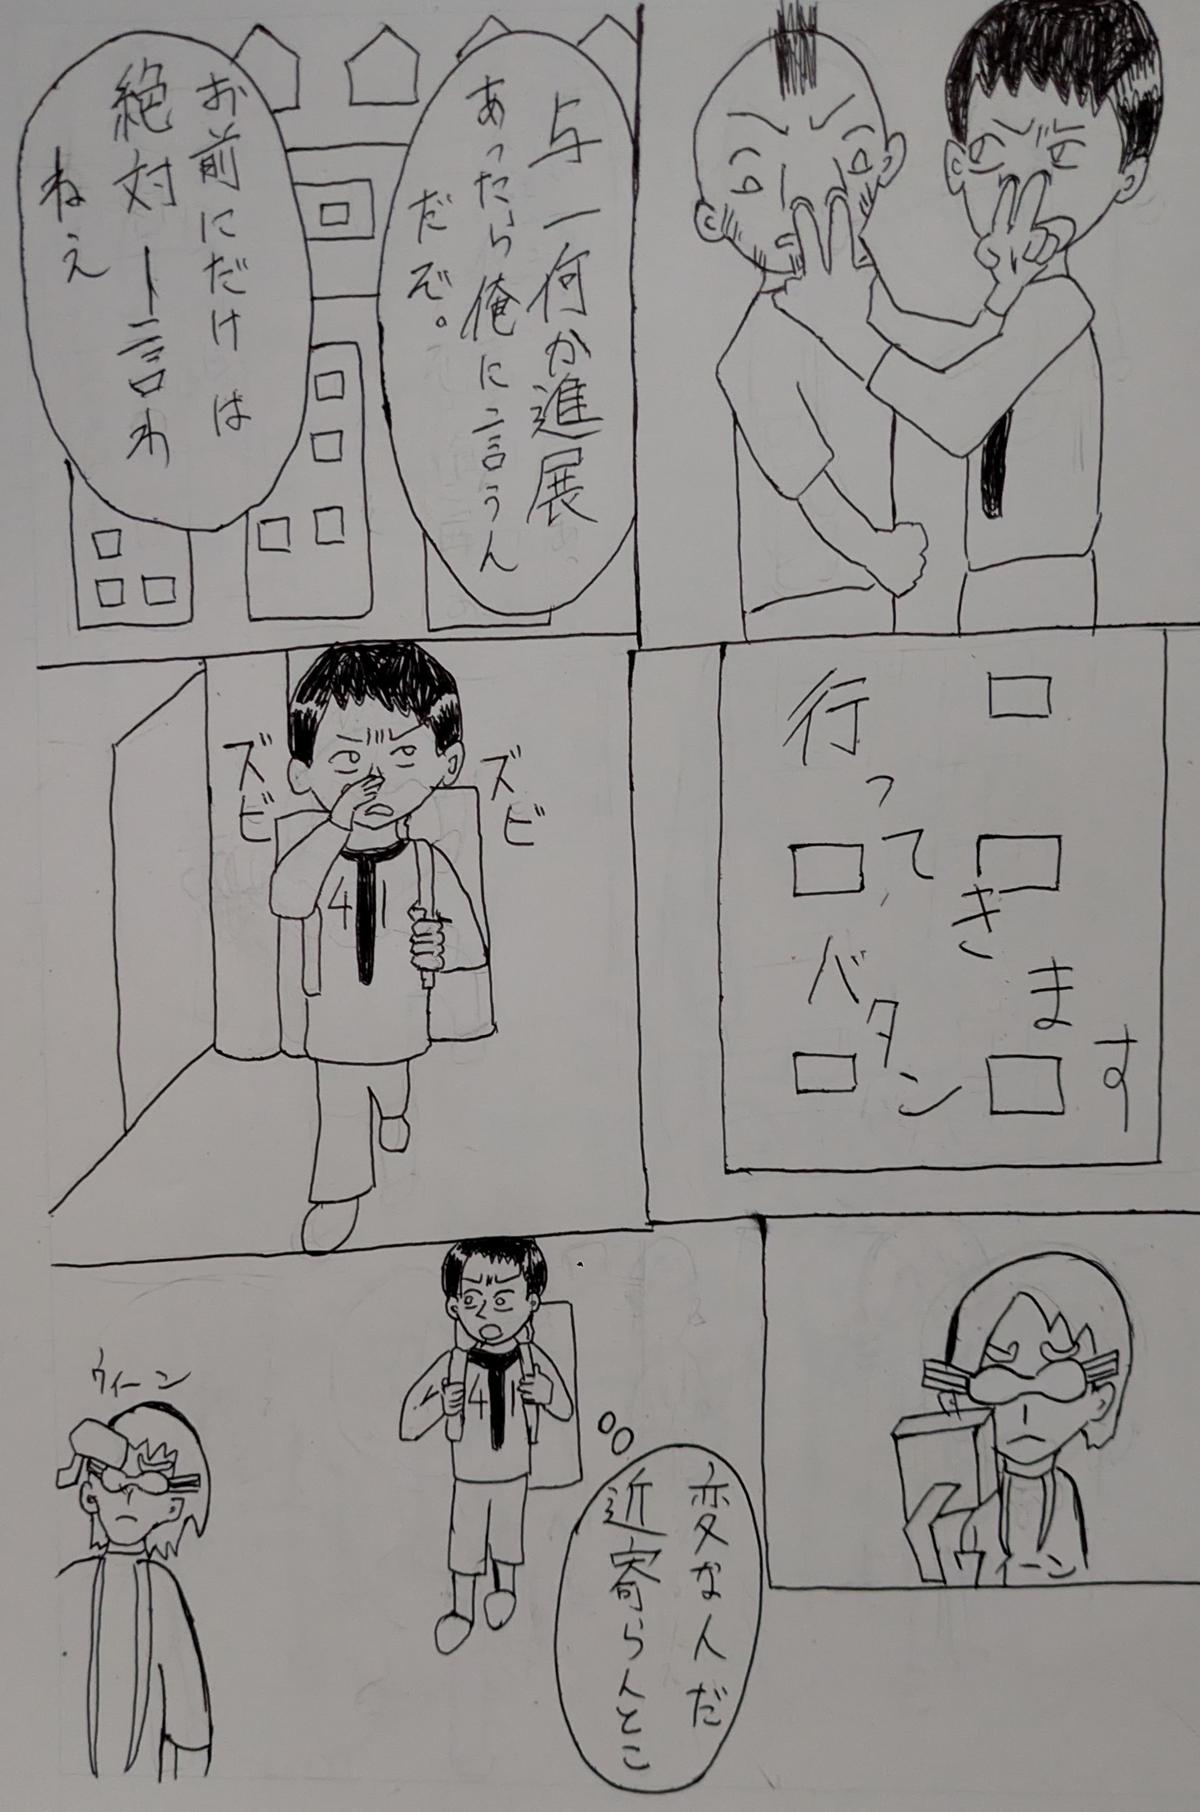 与一何か進展
あったら俺に言うん
だぞ。
お前にだけは
絶対ー言わ
ねえ
行ってきます
バタン
ズビ
ズビ
ウィーン
変な人だ
近寄らんとこ
ウィーン